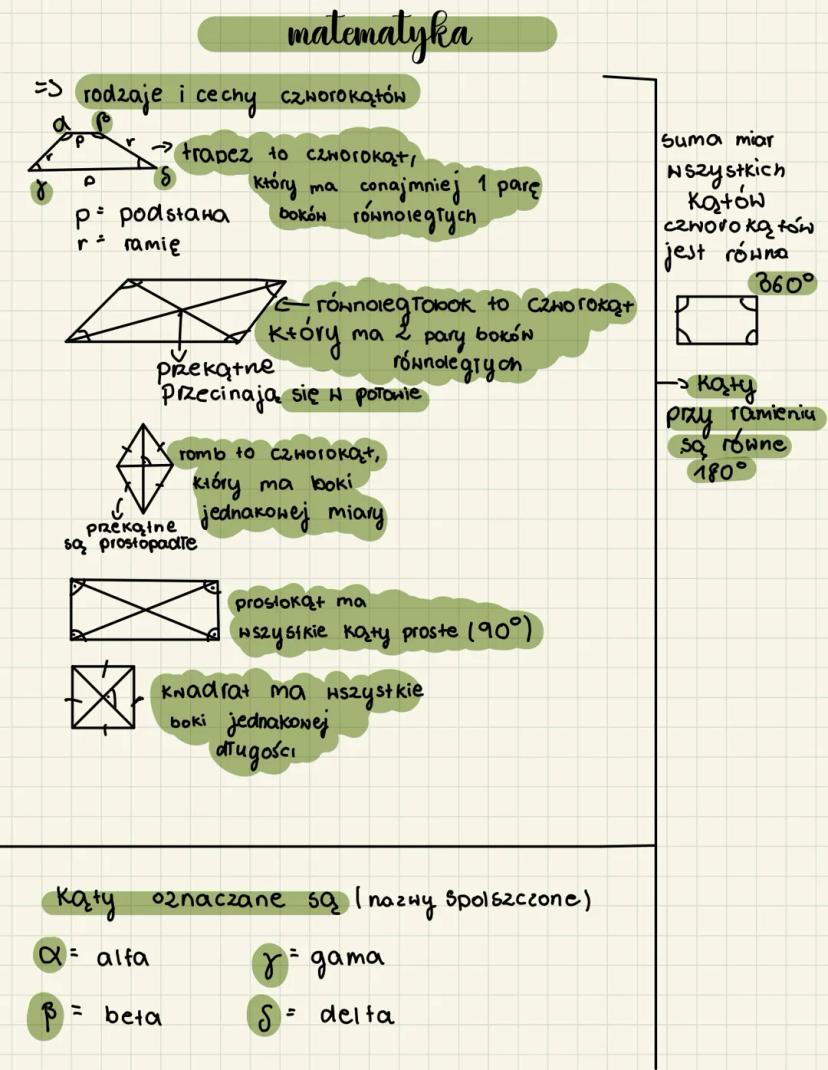 matematyka
=> rodzaje i cechy czworokątów
α β
p
r r
p
γ δ
→ trapez to czworokąt,
który ma conajmniej 1 parę
boków równoległych
p = podstawa
r = ramię
← równoległobok to czworokąt
który ma 2 pary boków
równoległych
przekątne
przecinają się w połowie
romb to czworokąt,
który ma boki
jednakowej miary
przekątne
są prostopadłe
prostokąt ma
wszystkie kąty proste (90°)
kwadrat ma wszystkie
boki jednakowej
długości
suma miar
wszystkich
kątów
czworokątów
jest równa
360°
→ kąty
przy ramieniu
są równe
180°
kąty oznaczane są (nazwy spolszczone)
α = alfa
γ = gama
β = beta
δ = delta